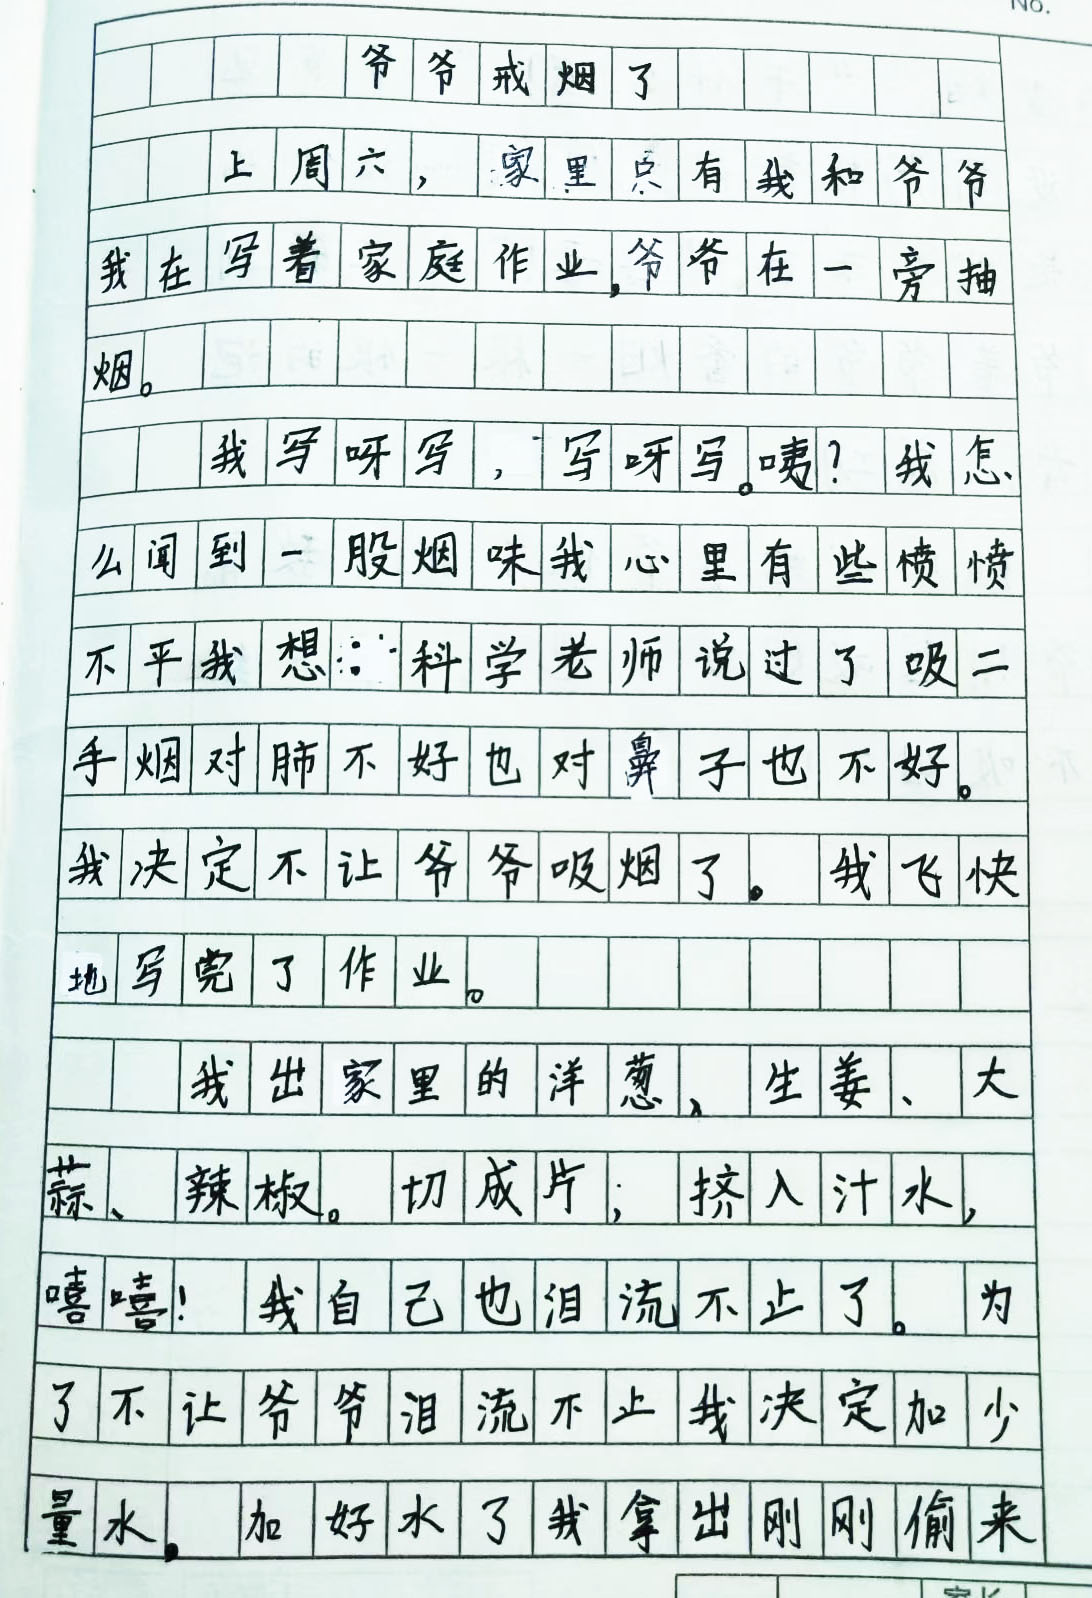 No.
爷爷戒烟了
上周六，家里只有我和爷爷
我在写着家庭作业,爷爷在一旁抽
烟。
我写呀写，写呀写。咦？我怎
么闻到一股烟味我心里有些愤愤
不平我想：科学老师说过了吸二
手烟对肺不好也对鼻子也不好。
我决定不让爷爷吸烟了。我飞快
地写完了作业。
我出家里的洋葱、生姜、大
蒜、辣椒。切成片；挤入汁水，
嘻嘻！我自己也泪流不止了。为
了不让爷爷泪流不止我决定加少
量水，加好水了我拿出刚刚偷来